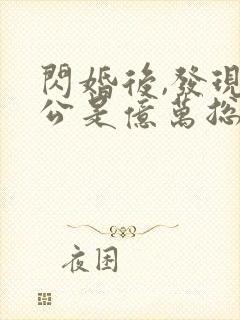 閃婚後,發現
公是億萬總
夜困